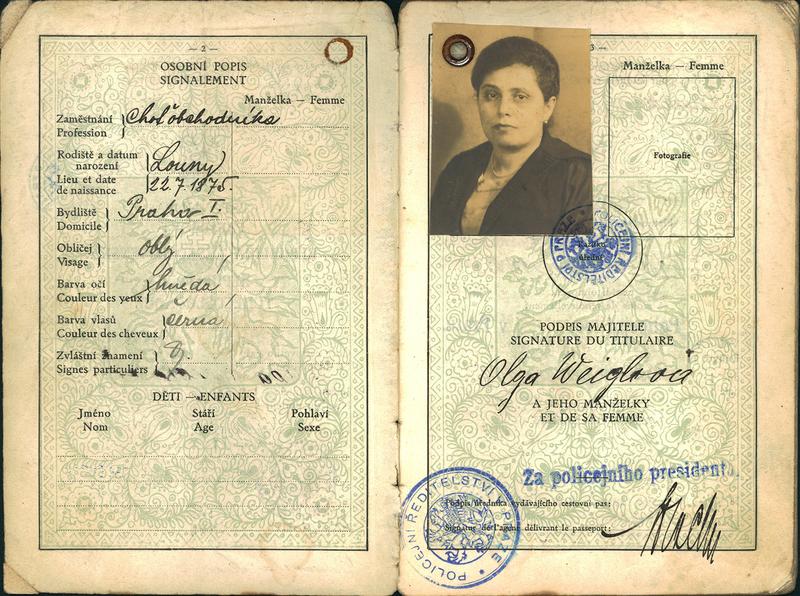 — 2 —
OSOBNÍ POPIS
SIGNALEMENT
Manželka — Femme
Zaměstnání
Choť obchodníka
Profession
Rodiště a datum
narození
Louny
Lieu et date
de naissance
22.7.1875.
Bydliště
Praha I.
Domicile
Obličej
oblý
Visage
Barva očí
hnědá
Couleur des yeux
Barva vlasů
černá
Couleur des cheveux
Zvláštní znamení
Signes particuliers
DĚTI — ENFANTS
Jméno Stáří Pohlaví
Nom Age Sexe
3 —
Manželka — Femme
Fotografie
POLICEJNÍ ŘEDITELSTVÍ V PRAZE
PODPIS MAJITELE
SIGNATURE DU TITULAIRE
Olga Weiglová
A JEHO MANŽELKY
ET DE SA FEMME
Za policejního presidenta
Podpis úředníka vydávajícího cestovní pas:
Signature de l'agent délivrant le passeport:
POLICEJNÍ ŘEDITELSTVÍ V PRAZE